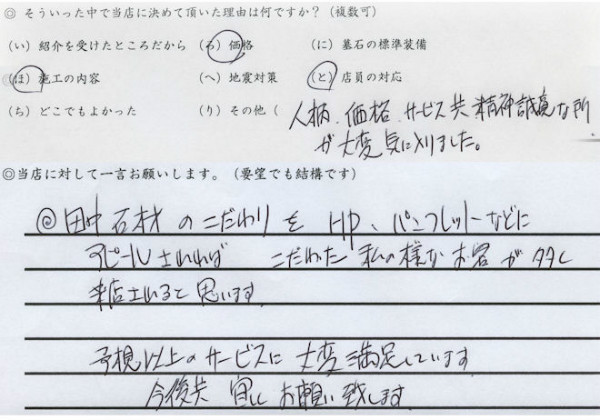 ◎ そういった中で当店に決めて頂いた理由は何ですか？（複数可）
（い）紹介を受けたところだから （ろ）価格 （に）墓石の標準装備
（は）施工の内容 （へ）地震対策 （と）店員の対応
（ち）どこでもよかった （り）その他（ 人柄、価格、サービス共 精神誠意な所
が大変気に入りました。
◎当店に対して一言お願いします。（要望でも結構です）
◎田中石材のこだわりを HP、パンフレットーなどに
アピールされれば こだわった私の様なお客が多く
来店されると思います
予想以上のサービスに大変満足しています
今後共 宜しくお願い致します